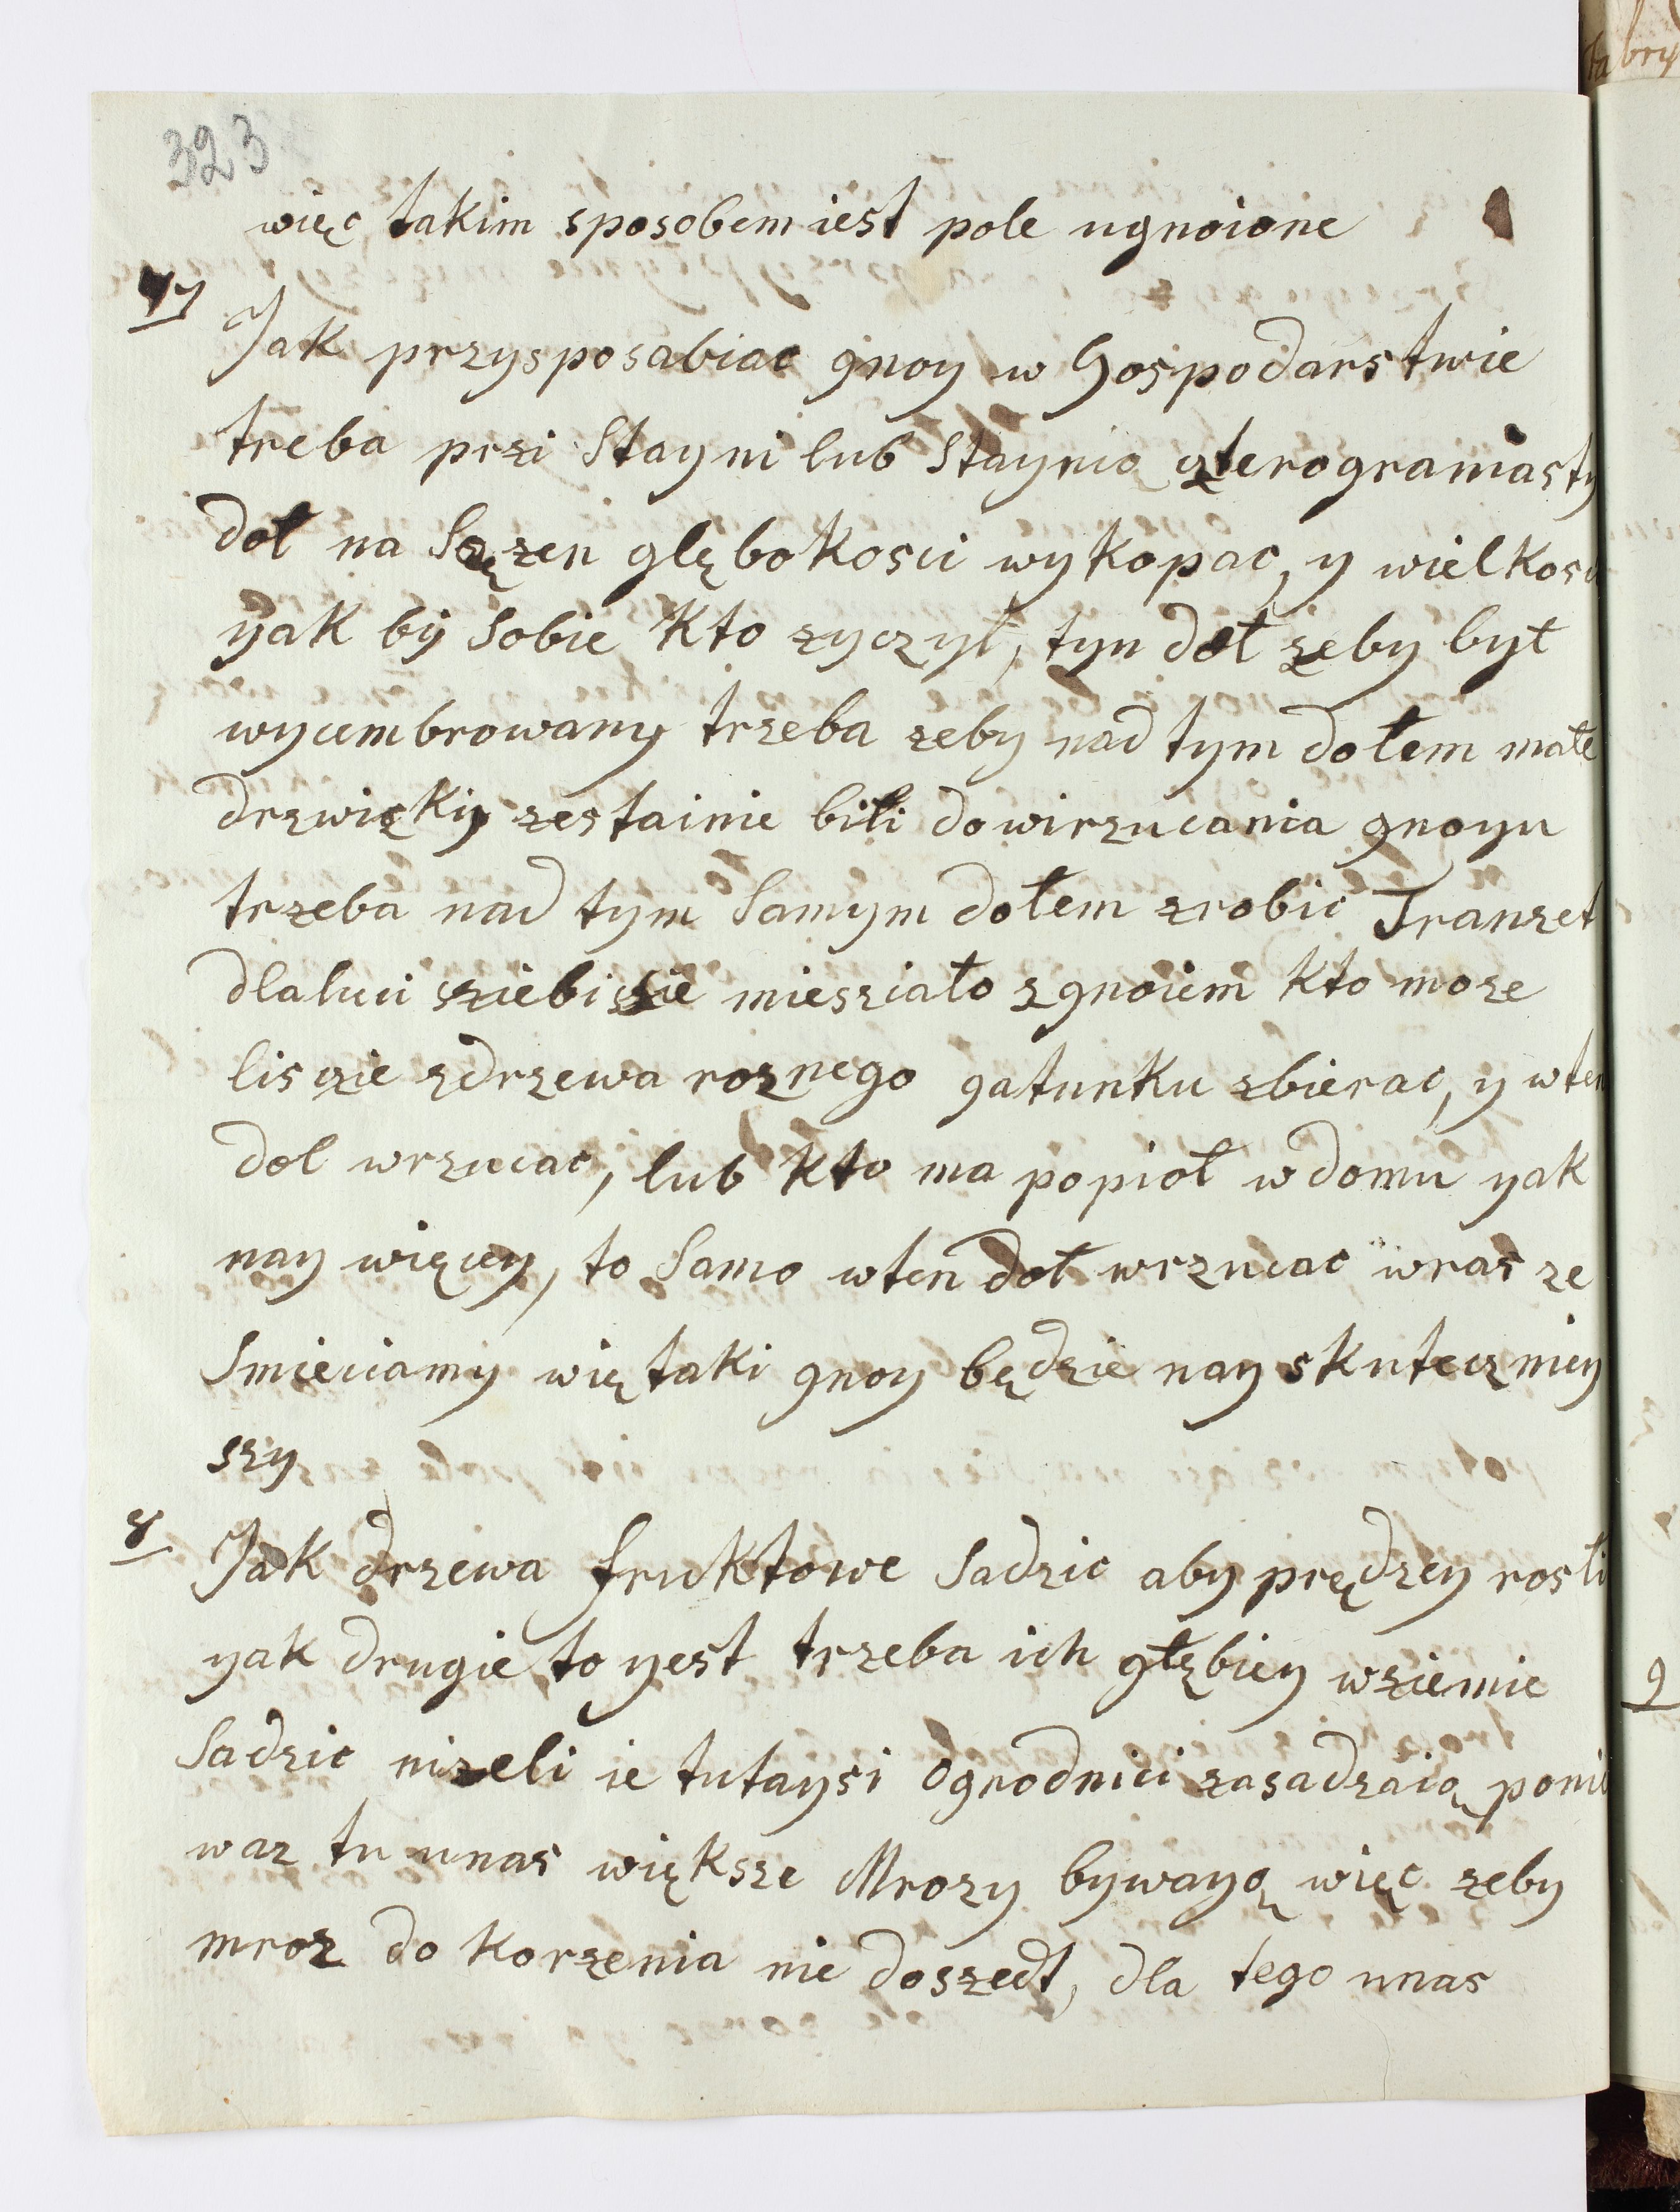 323
więc takim sposobem iest pole ugnoione
7
Jak przysposabiac gnoy w Gospodarstwie
treba przi Stayni lub Staynio czterograniasty
doł na Sązen glębokosci wykopac, y wielkosci
yak bÿ Sobie Kto zyczył, tyn doł zeby był
wycembrowany trzeba zeby nad tym dołem małe
drzwięki zestainie biłi dowirzucania gnoyu
trzeba nad tym Samym dołem zrobic Tranzet
dlaluci sziebi sie miesziało zgnoiem Kto moze
liscie zdrzewa roznego gatunku zbierac, y wten
dol wrzucac, lub kto ma popioł w domu yak
nay więcey, to Samo wten doł wrzucac wras ze
Smieciamy wię taki gnoy będzie nay skuteczniey
szy
8
Jak drzewa fruktowe Sadzic aby prędzey rosłi
yak drugie to yest trzeba ich głębiey wziemie
Sadzic nizeli ie tutaysi Ogrodnici zasadzaią ponie
waz tu unas większe Mrozy bywayą więc zeby
mroz do Korzenia nie doszedł, dla tego unas
9